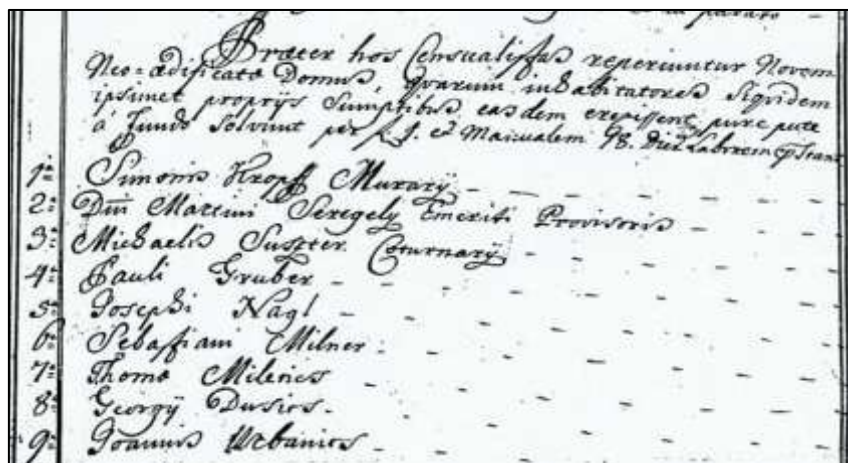 in parato -
Præter hos Censualistas reperiuntur Novem
Neo-ædificatæ Domus, quarum inhabitatores siquidem
ipsimet proprijs Sumptibus eas dem erexissent, pure pute
a fundo Solvunt per f. 1. et Manualem 98. Diem Laborem præstant
1a Simonis Kropff Murarij - - - -
2a Dni Martini Seregely Emeriti Provisoris - - -
3a Michaelis Suszter - - - -
4a Pauli Gruber - - - -
5a Josephi Nagl - - - -
6a Sebastiani Milner - - - -
7a Thomæ Milenics - - - -
8a Georgij Dusics - - - -
9a Joannis Urbanics - - - -